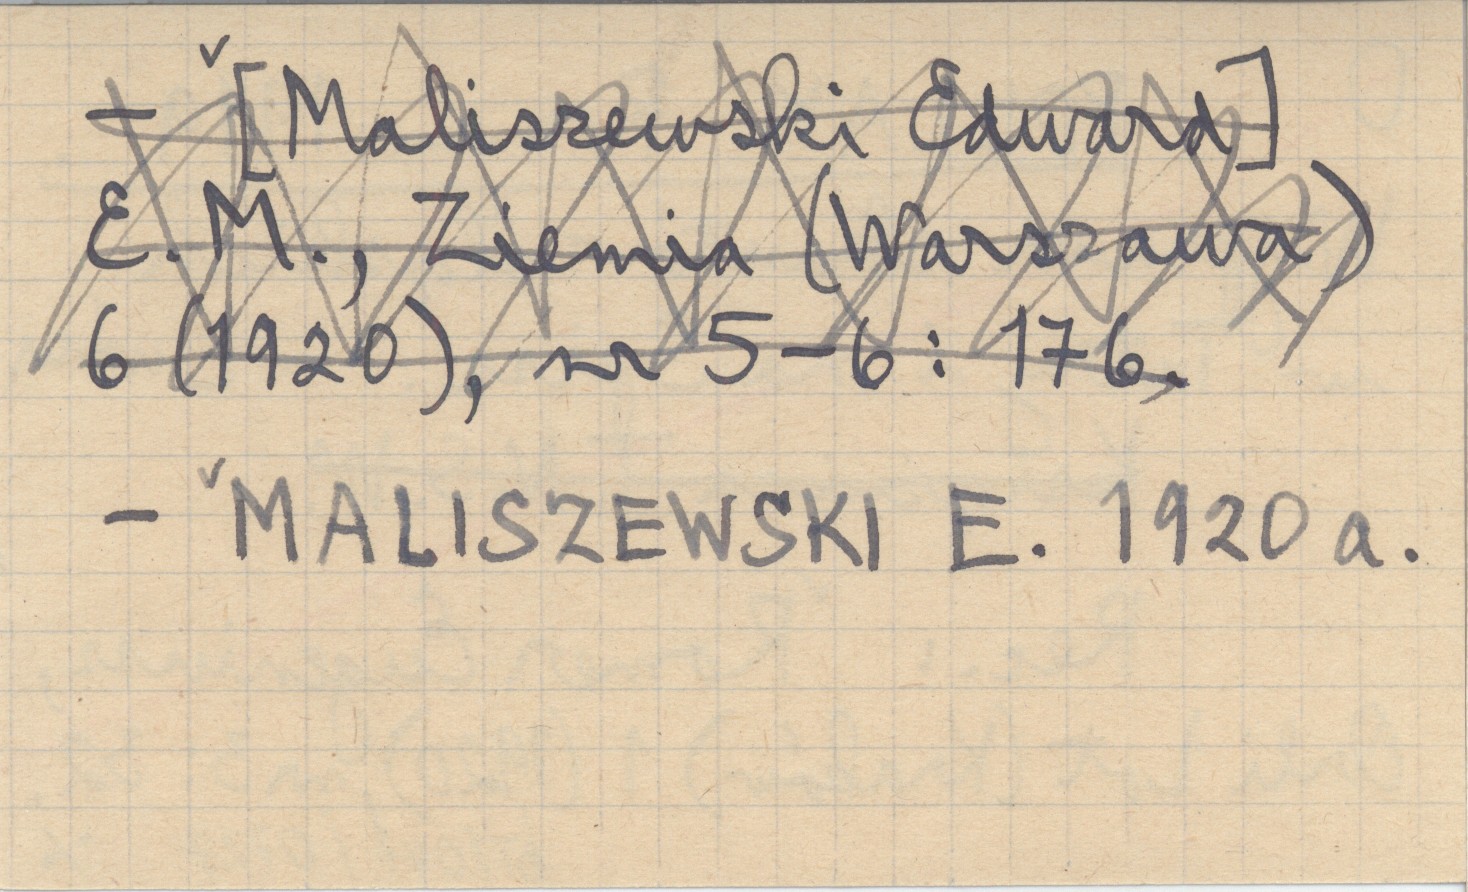 – ˇ[Maliszewski Edward]
E.M., Ziemia (Warszawa)
6 (1920), nr 5–6: 176.
– ˇMALISZEWSKI E. 1920 a.